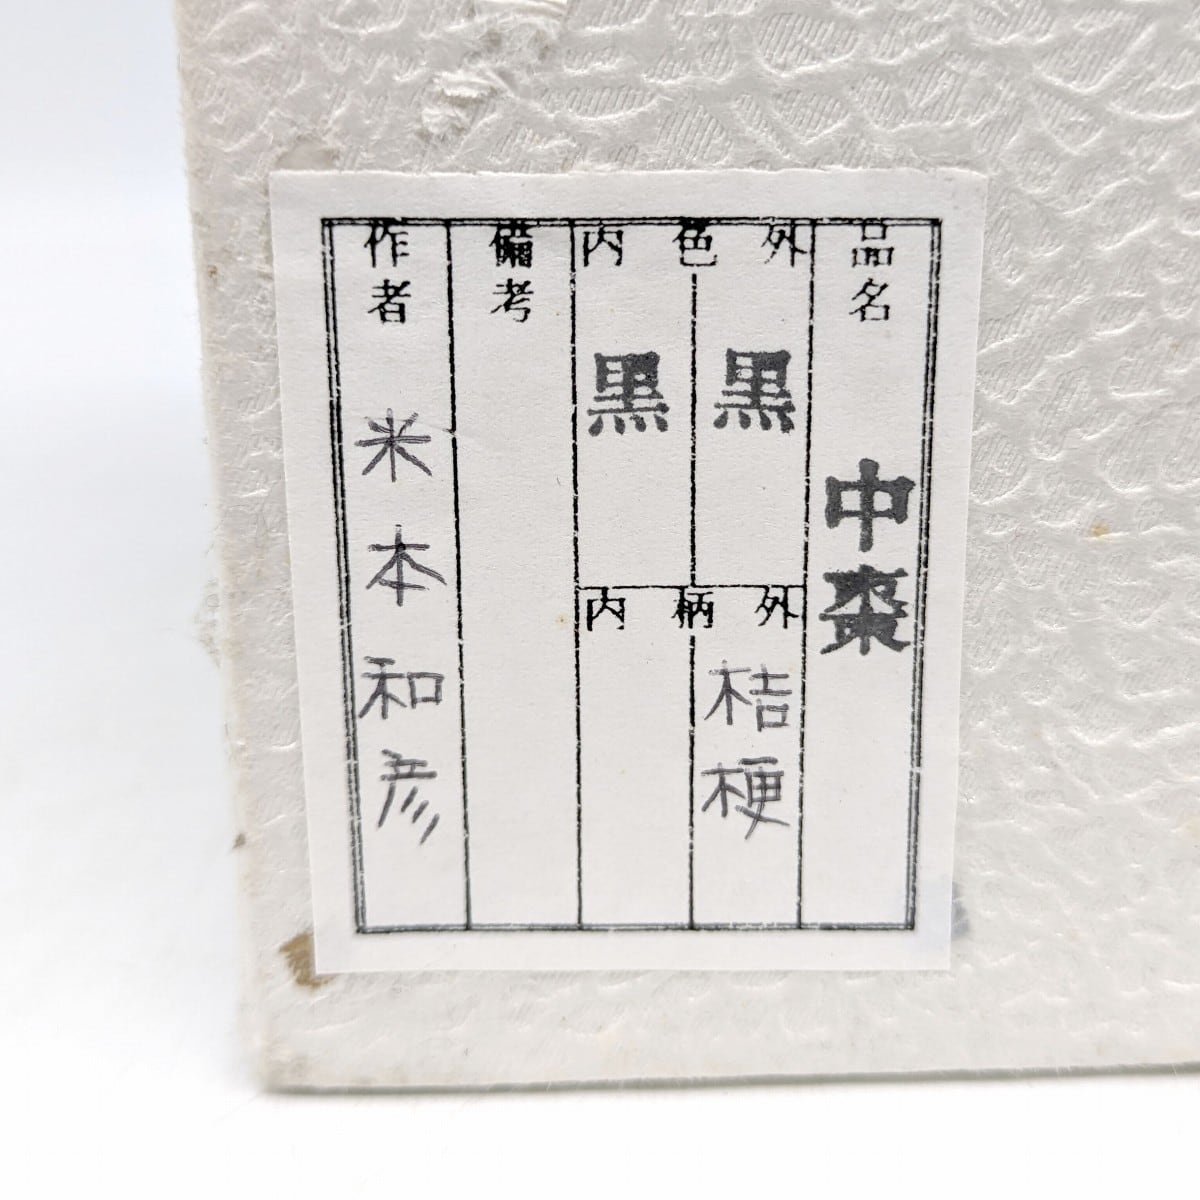 品名
中棗
外 色 内
黒
黒
外 柄 内
桔梗
備考
作者
米本和彦